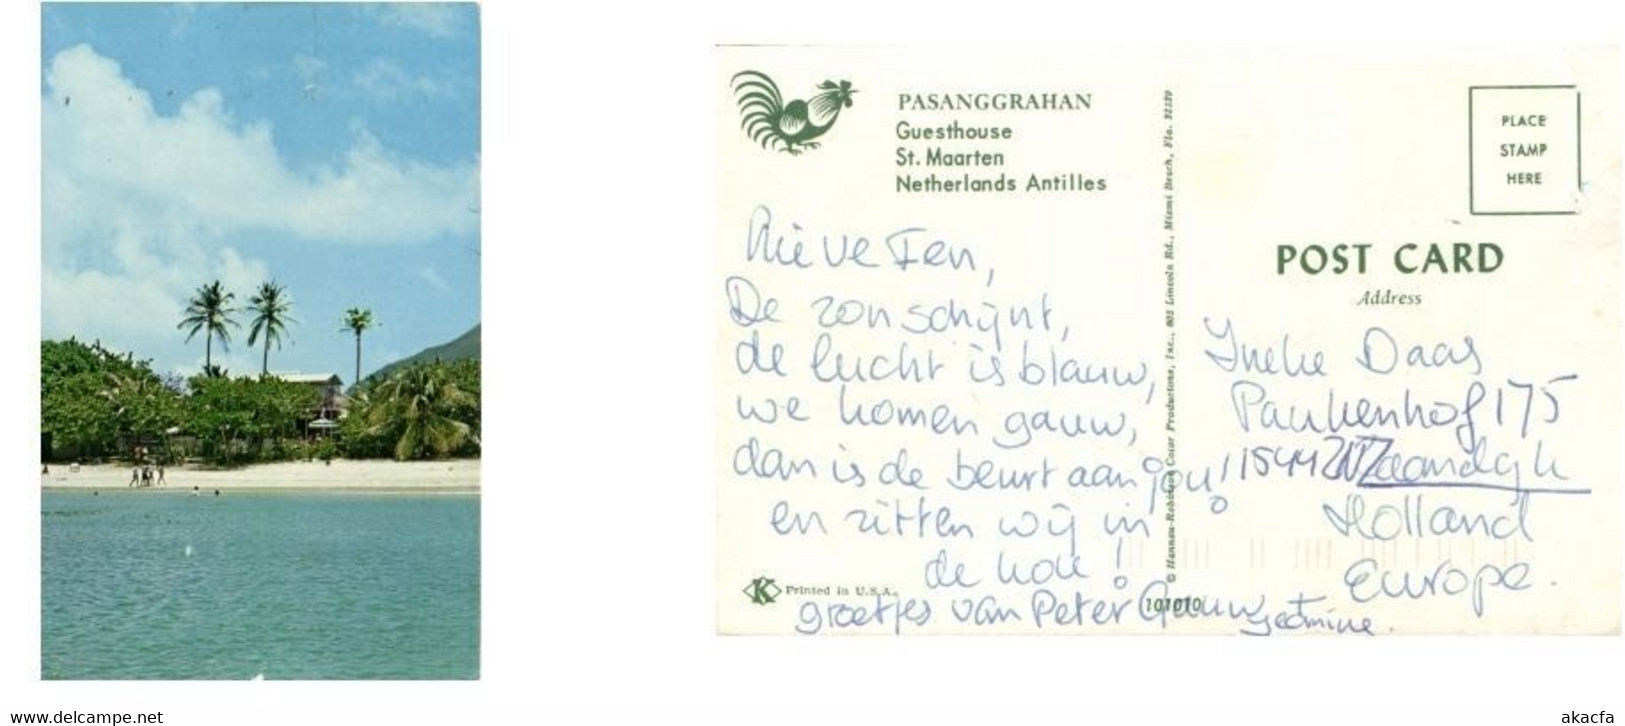 PASANGGRAHAN
Guesthouse
St. Maarten
Netherlands Antilles
De zon schijnt,
de lucht is blauw,
we komen gauw,
dan is de beurt aan jou!
en zitten wij in
de kou!
groetjes van Peter
K Printed in U.S.A.
© Hannau-Robinson Color Productions, Inc., 605 Lincoln Rd., Miami Beach, Fla. 33139
101010
PLACE
STAMP
HERE
POST CARD
Address
Ineke Daas
Paukenhof 175
Zaandijk
Holland
Europe.
www.delcampe.net
akacfa